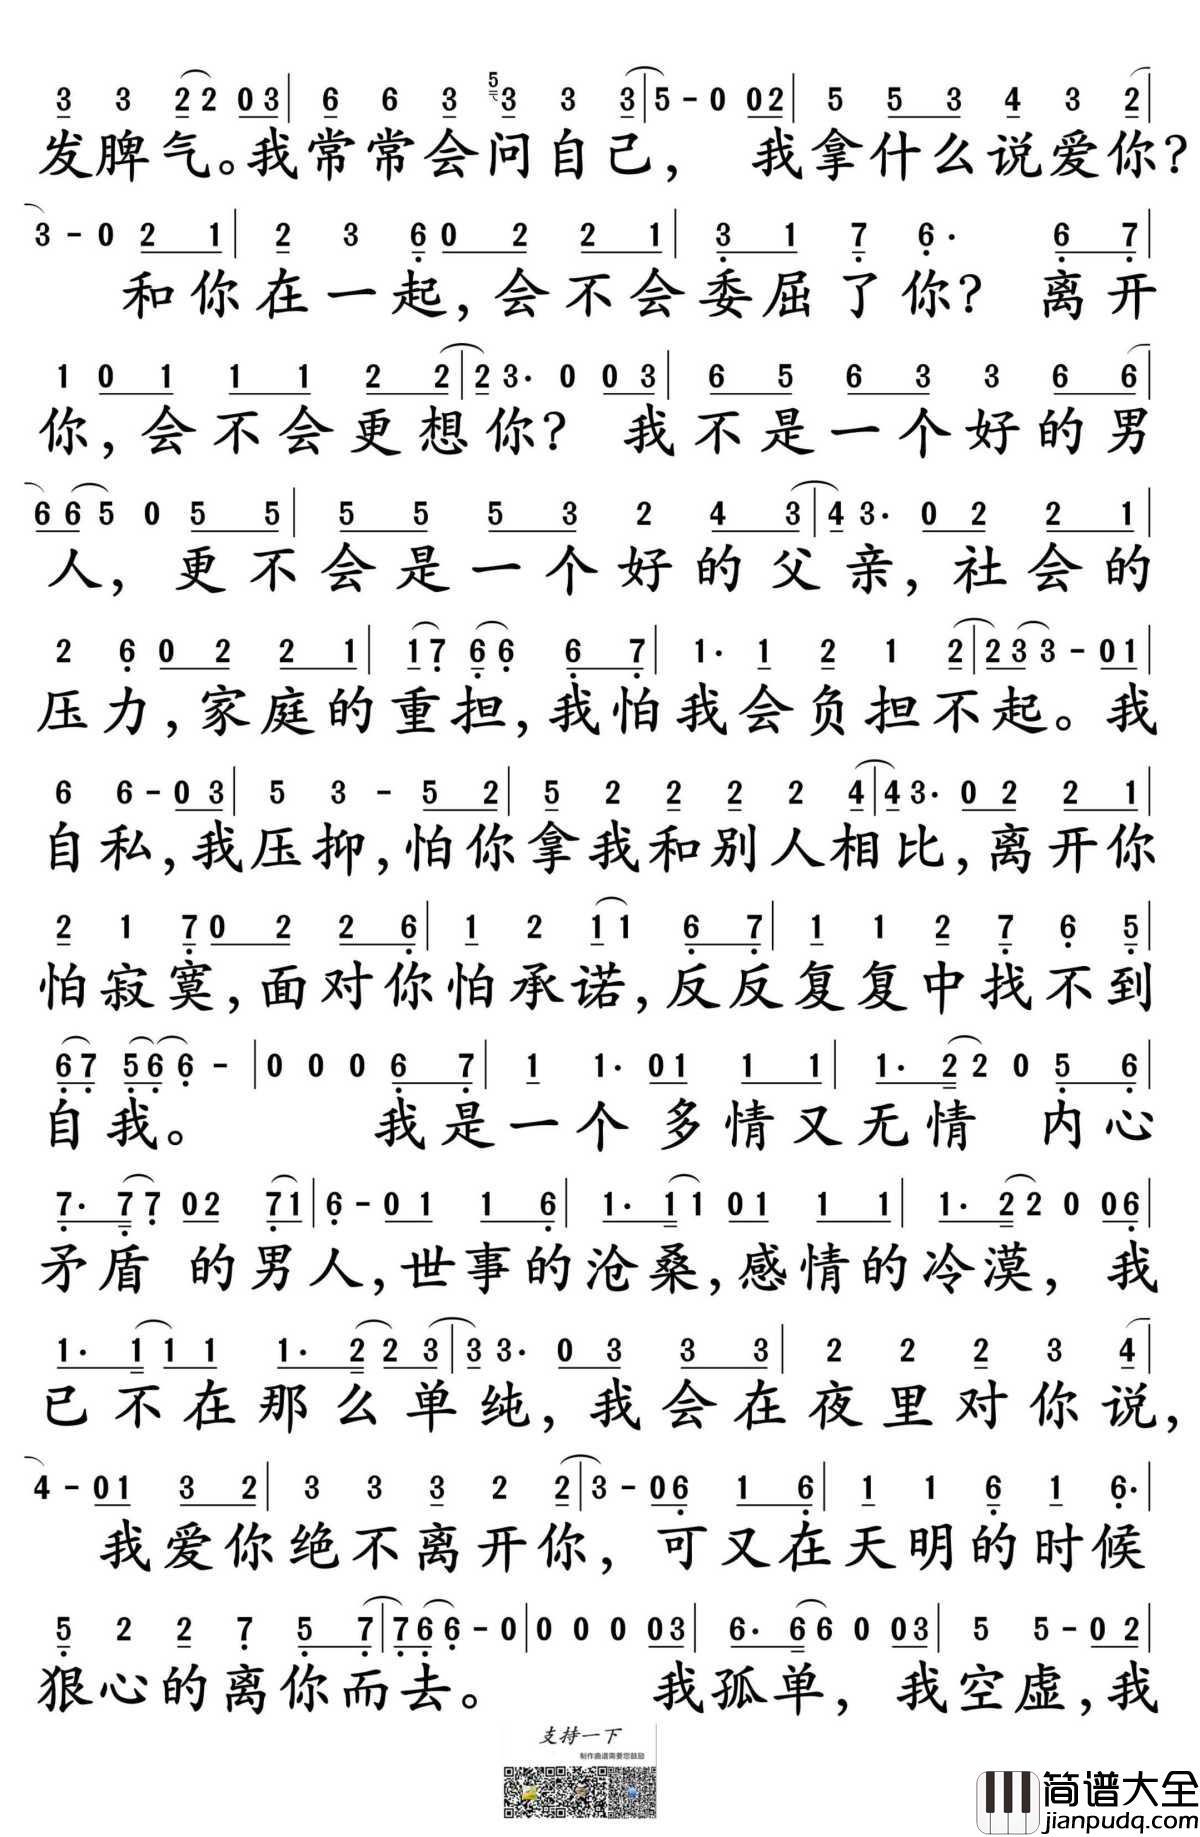 3 3 2 2 0 3 | 6 6 3 5 3 3 3 | 5 - 0 0 2 | 5 5 3 4 3 2 |
发脾气。我常常会问自己， 我拿什么说爱你？
3 - 0 2 1 | 2 3 6 0 2 2 1 | 3 1 7 6 · 6 7 |
和你在一起，会不会委屈了你？ 离开
1 0 1 1 1 2 2 | 2 3 · 0 0 3 | 6 5 6 3 3 6 6 |
你，会不会更想你？ 我不是一个好的男
6 6 5 0 5 5 | 5 5 5 3 2 4 3 | 4 3 · 0 2 2 1 |
人，更不会是一个好的父亲，社会的
2 6 0 2 2 1 | 1 7 6 6 6 7 | 1 · 1 2 1 2 | 2 3 3 - 0 1 |
压力，家庭的重担，我怕我会负担不起。我
6 6 - 0 3 | 5 3 - 5 2 | 5 2 2 2 2 4 | 4 3 · 0 2 2 1 |
自私，我压抑，怕你拿我和别人相比，离开你
2 1 7 0 2 2 6 | 1 2 1 1 6 7 | 1 1 2 7 6 5 |
怕寂寞，面对你怕承诺，反反复复中找不到
6 7 5 6 6 - | 0 0 0 6 7 | 1 1 · 0 1 1 1 | 1 · 2 2 0 5 6 |
自我。 我是一个多情又无情 内心
7 · 7 7 0 2 7 1 | 6 - 0 1 1 6 | 1 · 1 1 0 1 1 1 | 1 · 2 2 0 0 6 |
矛盾 的男人，世事的沧桑，感情的冷漠， 我
1 · 1 1 1 1 · 2 2 3 | 3 3 · 0 3 3 3 | 2 2 2 3 4 |
已不在那么单纯，我会在夜里对你说，
4 - 0 1 3 2 | 3 3 3 2 2 | 3 - 0 6 1 6 | 1 1 6 1 6 · |
我爱你绝不离开你，可又在天明的时候
5 2 2 7 5 7 | 7 6 6 - 0 | 0 0 0 0 3 | 6 · 6 6 0 0 3 | 5 5 - 0 2 |
狠心的离你而去。 我孤单，我空虚，我
支持一下
制作曲谱需要您鼓励
简谱大全
jianpudq.com